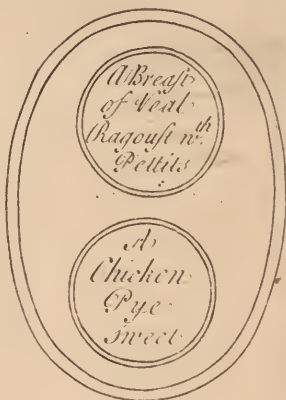 A Breast
of Veal
Ragoust wth
Pettits
A
Chicken
Pye
sweet